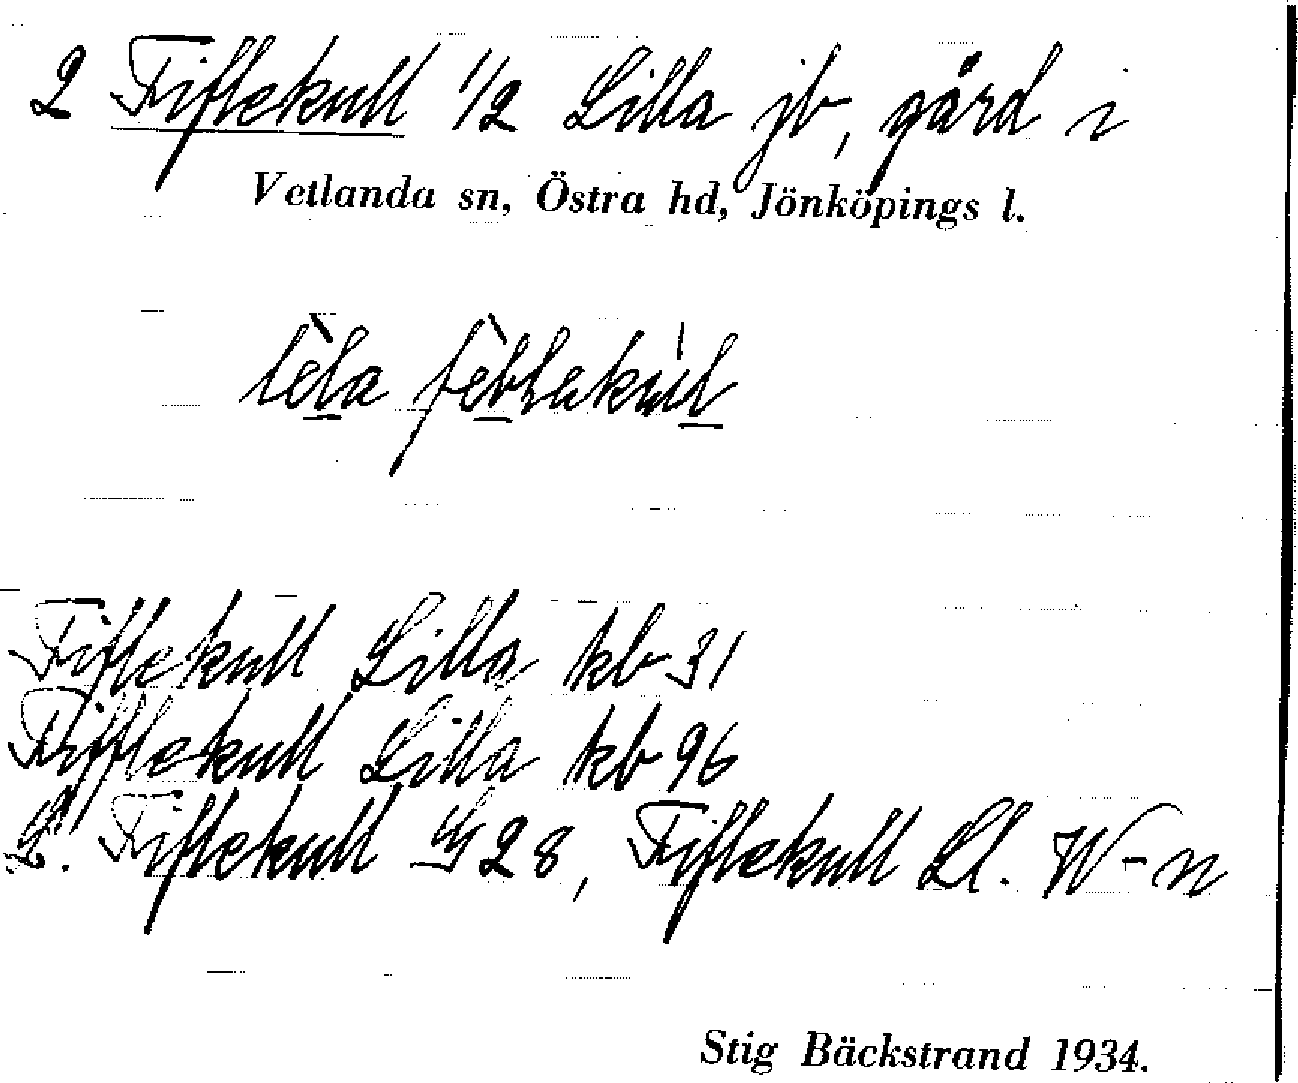 2 Fiflekull 1/2 Lilla jb, gård i
Vetlanda sn, Östra hd, Jönköpings l.
Fiflekull Lilla kb 31
Fifflekull Lilla kb 96
L. Fiflekull G 28, Fiflekull Ll. W-n
Stig Bäckstrand 1934.